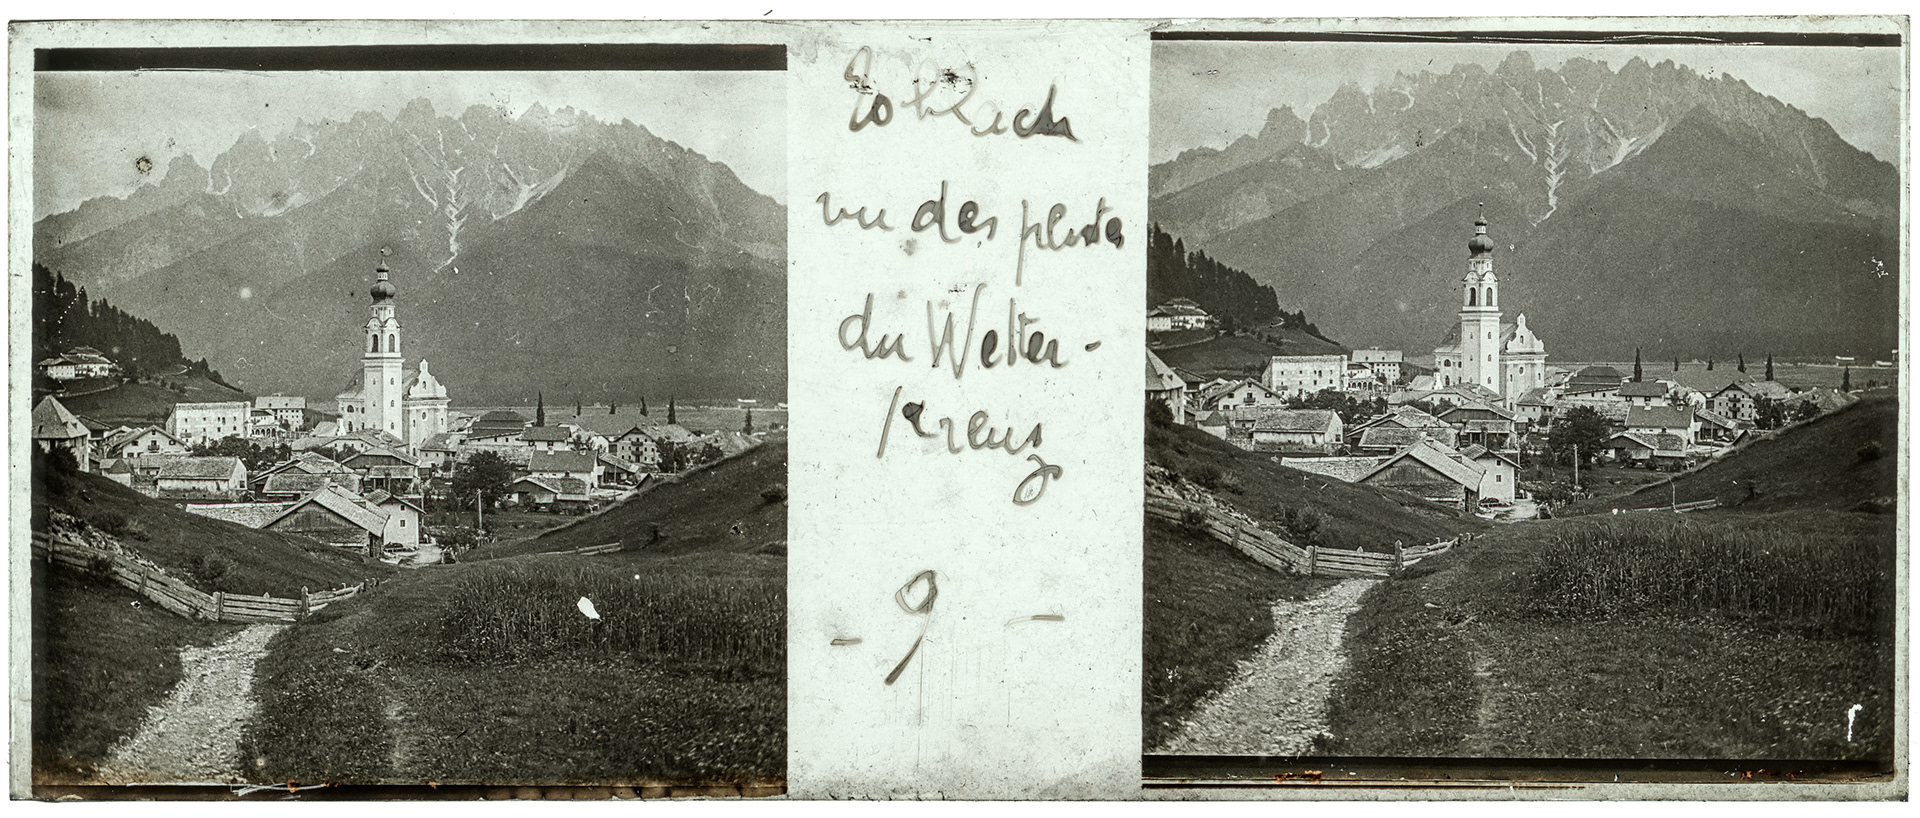 Toblach
vu des pentes
du Wetter-
Kreuz
- 9 -